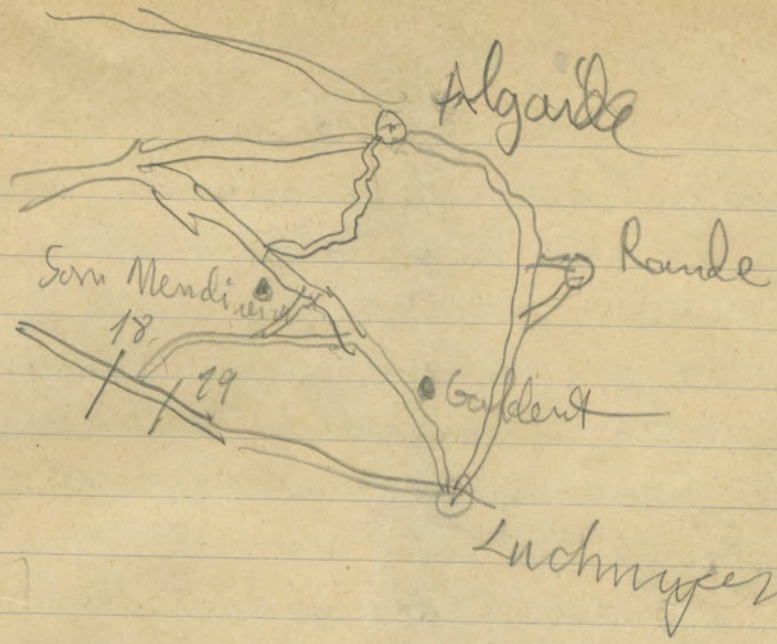 Algaide
Rande
Son Mendi
18
19
Galdent
Luchmyer